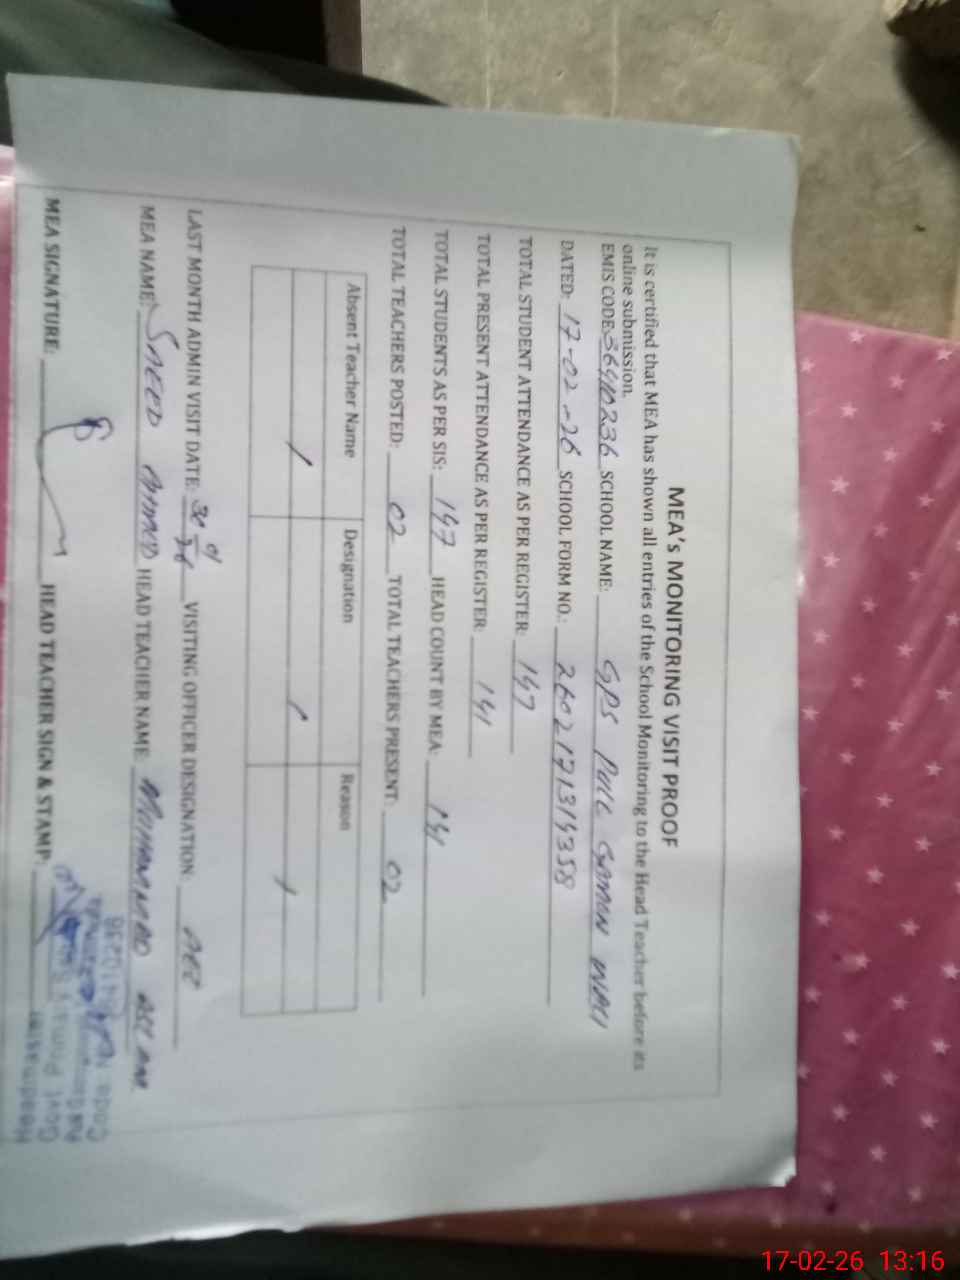 MEA's MONITORING VISIT PROOF
It is certified that MEA has shown all entries of the School Monitoring to the Head Teacher before its
online submission.
EMIS CODE: 36410236 SCHOOL NAME: GPS PULL GAMUN WALI
DATED: 17-02-26 SCHOOL FORM NO.: 2602171314358
TOTAL STUDENT ATTENDANCE AS PER REGISTER: 147
TOTAL PRESENT ATTENDANCE AS PER REGISTER: 141
TOTAL STUDENTS AS PER SIS: 147 HEAD COUNT BY MEA: 141
TOTAL TEACHERS POSTED: 02 TOTAL TEACHERS PRESENT: 02
Absent Teacher Name Designation Reason
LAST MONTH ADMIN VISIT DATE: 30 01 26 VISITING OFFICER DESIGNATION: AEE
MEA NAME: SAEED AHMED HEAD TEACHER NAME: MUHAMMAD
MEA SIGNATURE: HEAD TEACHER SIGN & STAMP:
Headmaster
Govt
Code
17-02-26 13:16